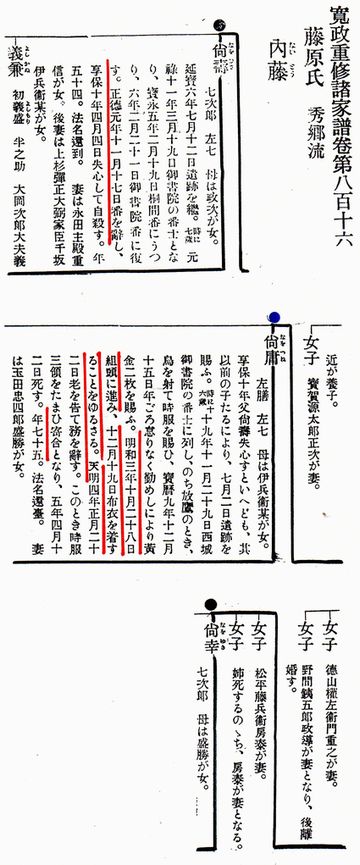 寛政重修諸家譜卷第八百十六
藤原氏　秀郷流
内藤
尚壽
七次郎　左七　母は政次が女。
延寶六年七月十二日遺跡を繼。時に七歳 元
祿十一年三月十九日御書院の番士とな
り、寳永五年二月十九日桐間番にうつ
り、六年二月二十一日御書院番に復
す。正德元年十一月十七日番を辭し、
享保十年四月四日失心して自殺す。年
五十四。法名還到。　妻は永田主殿重
信が女。後妻は上杉彈正大弼家臣千坂
伊兵衞某が女。
義兼　初義盛　半之助　大岡次郎大夫義
近が養子。
女子　寳賀源太郎正次が妻。
尚庸
左膳　左七　母は伊兵衞某が女。
享保十年父尚壽失心すといへども、其
以前の子たるにより、七月二日遺跡を
賜ふ。時に十六歳 十九年十一月二十九日西城
御書院の番士に列し、のち放鷹のとき、
鳥を射て時服を賜ひ、寶曆九年十二月
十五日年ごろ怠りなく勤めしにより黃
金二枚を賜ふ。明和三年十月二十八日
組頭に進み、十二月十九日布衣を着す
ることをゆるさる。天明四年正月二十
二日老を告て務を辭す。このとき時服
三領をたまひ寄合となり、五年四月十
二日死す。年七十五。法名還臺。　妻
は玉田忠四郎盛勝が女。
女子　德山權左衞門重之が妻。
女子　野間銕五郎政導が妻となり、後離
婚す。
女子　松平藤兵衞房泰が妻。
女子　姉死するのゝち、房泰が妻となる。
尚幸
七次郎　母は盛勝が女。